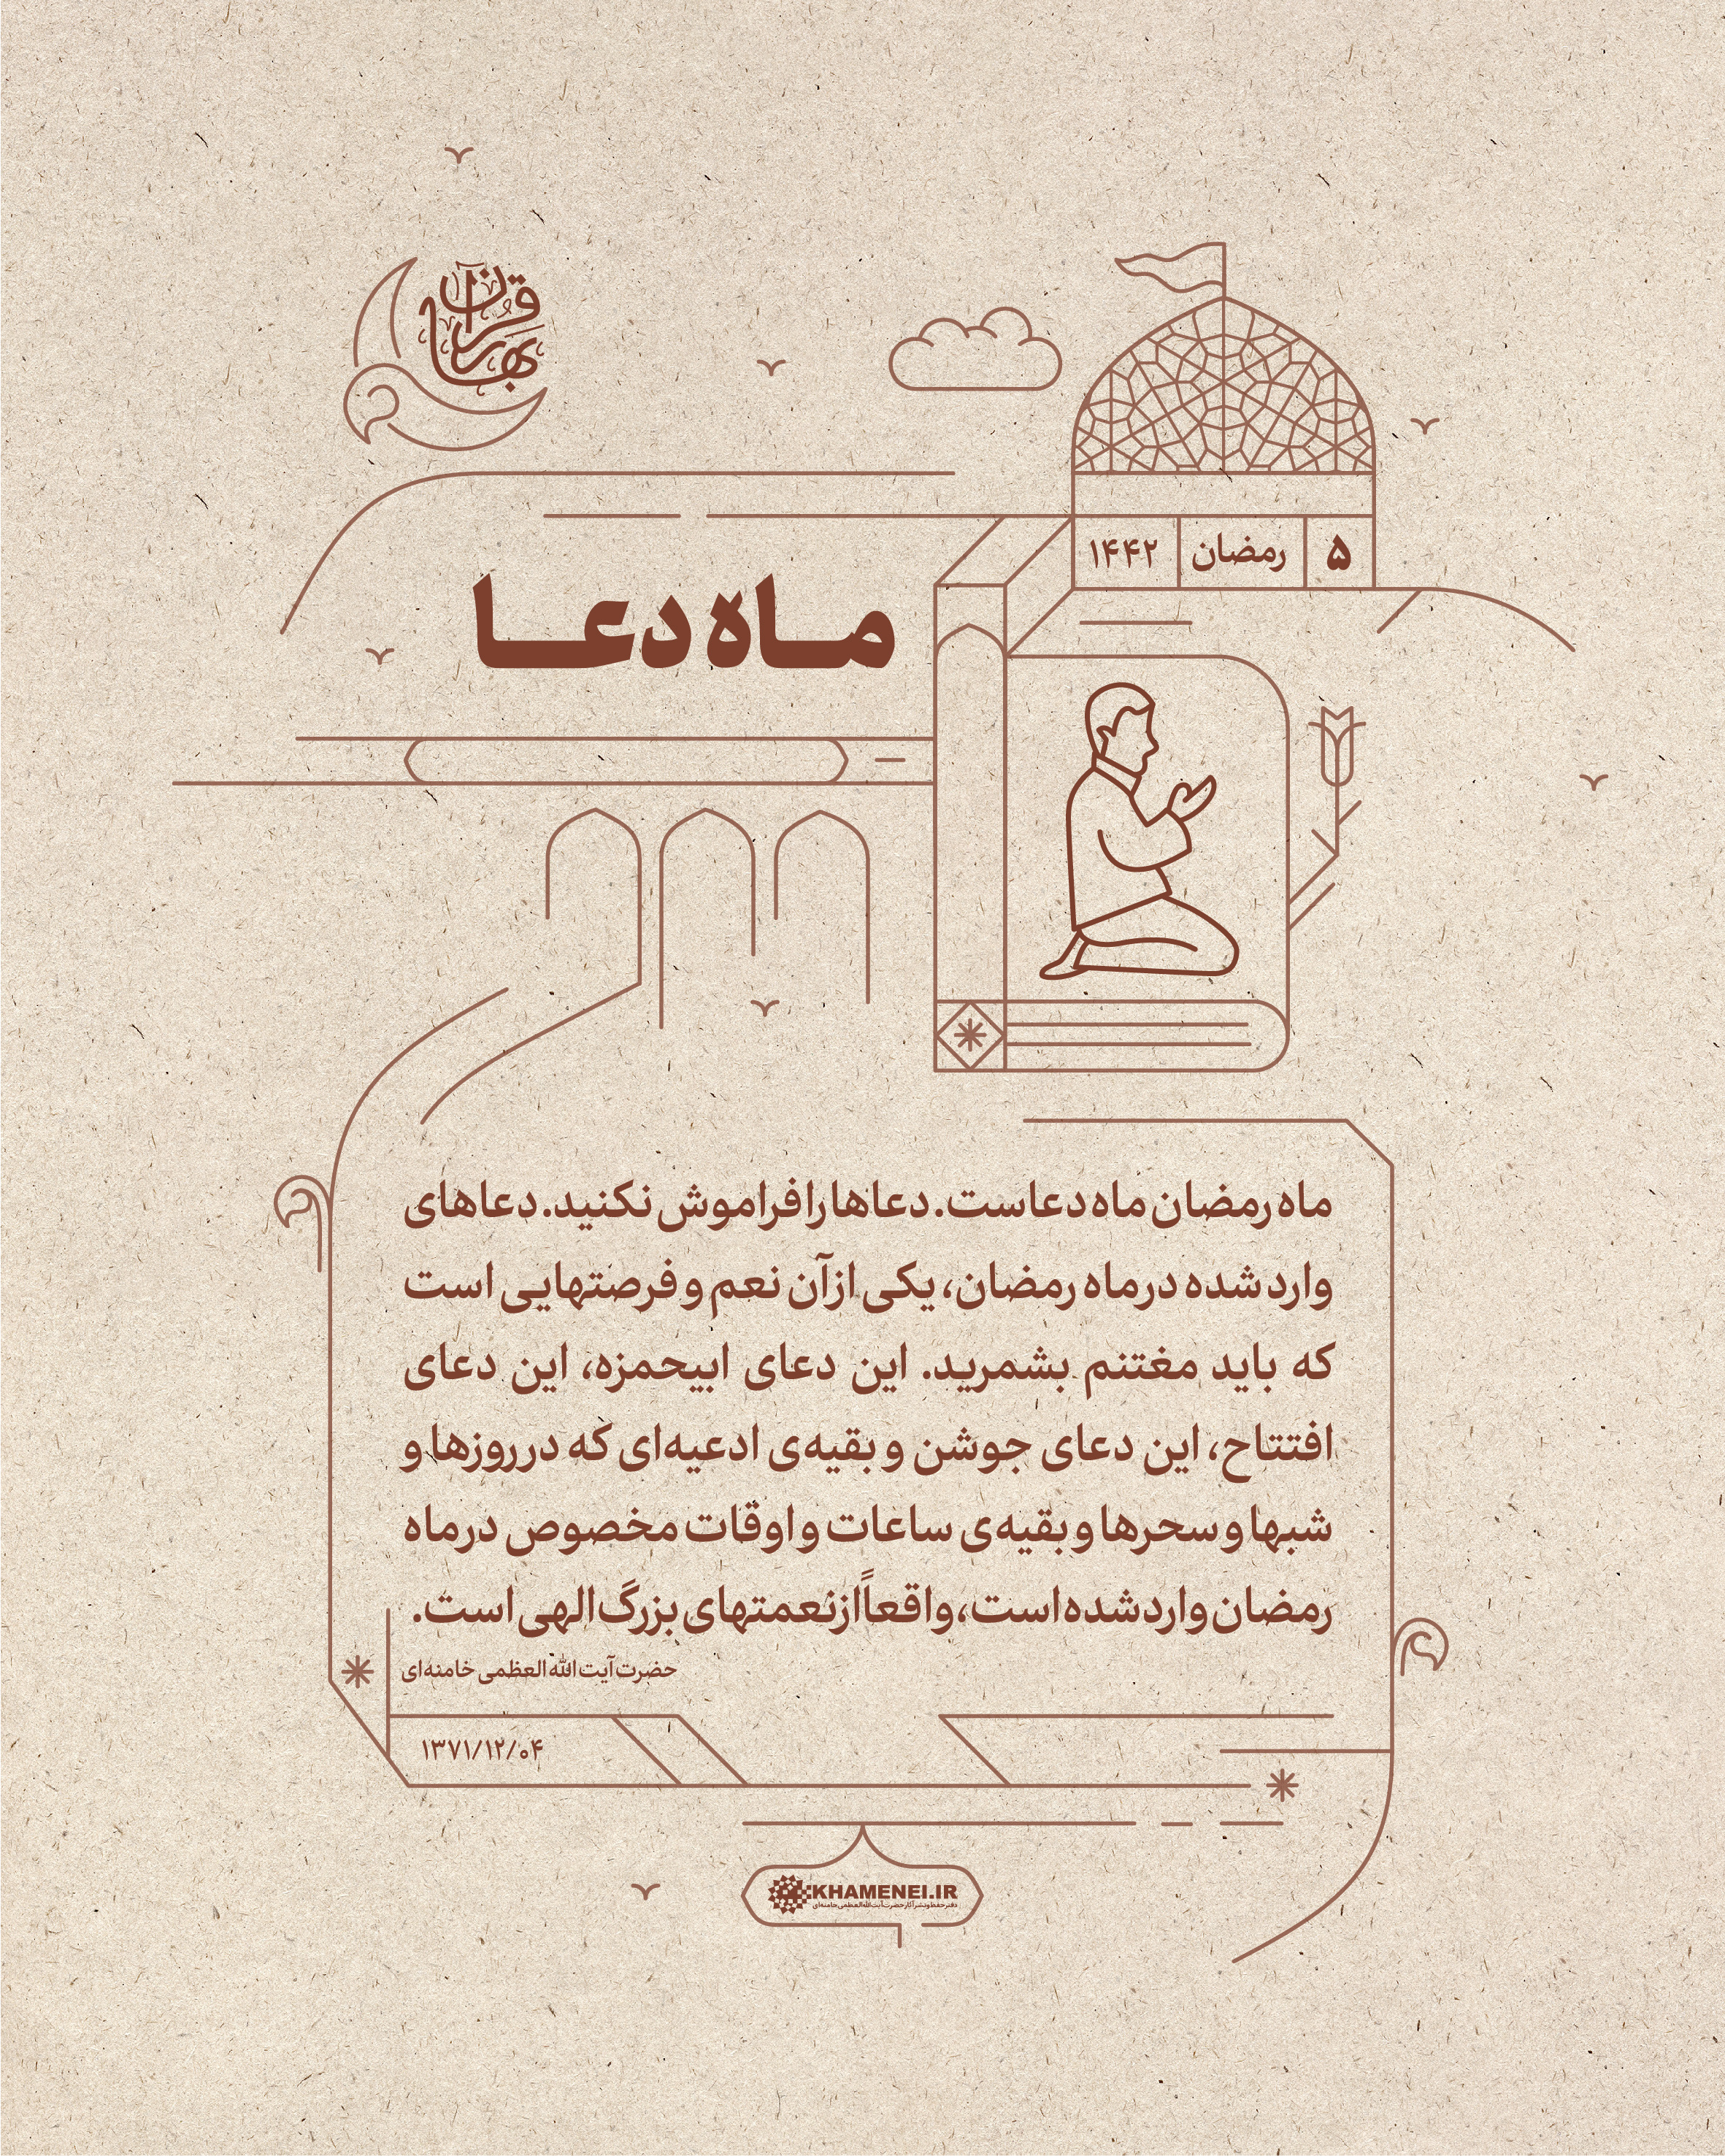 بهار قرآن
۵
رمضان
۱۴۴۲
ماه دعا
ماه رمضان ماه دعاست. دعاها را فراموش نکنید. دعاهای
وارد شده در ماه رمضان، یکی از آن نعم و فرصتهایی است
که باید مغتنم بشمرید. این دعای ابیحمزه، این دعای
افتتاح، این دعای جوشن و بقیه‌ی ادعیه‌ای که در روزها و
شبها و سحرها و بقیه‌ی ساعات و اوقات مخصوص در ماه
رمضان وارد شده است، واقعاً از نعمتهای بزرگ الهی است.
حضرت آیت الله العظمی خامنه‌ای
۱۳۷۱/۱۲/۰۴
KHAMENEI.IR
دفتر حفظ و نشر آثار حضرت آیت‌الله‌العظمی خامنه‌ای